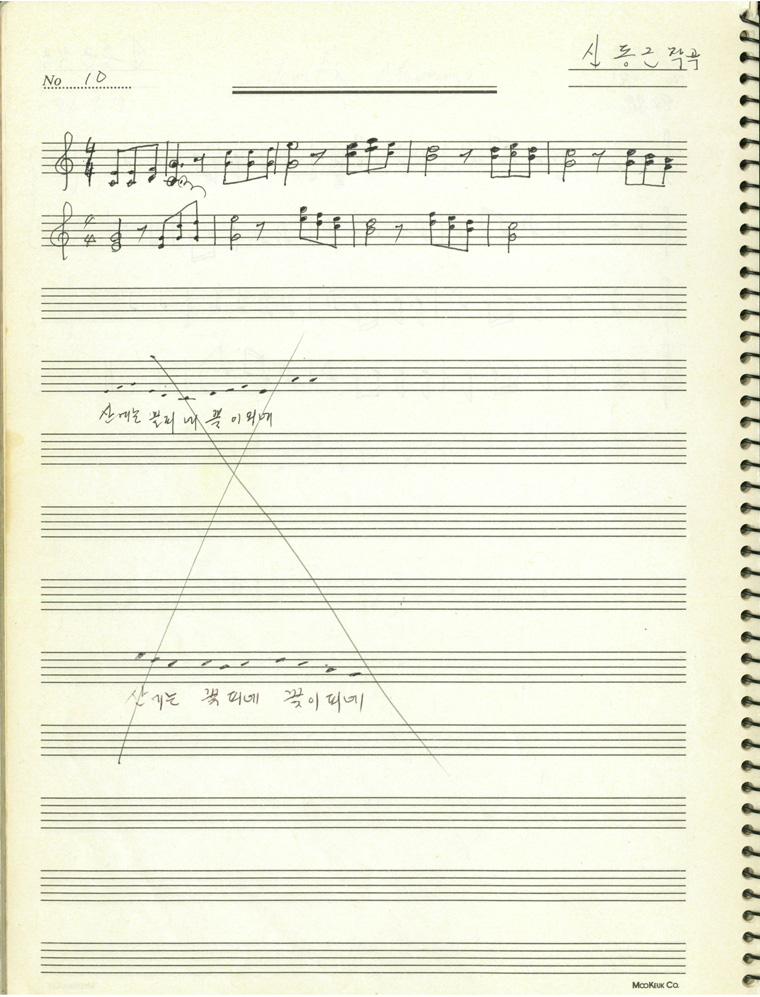 No 10
신동근 작곡
4
4
4
4
산에는 꽃피네 꽃이 피네
산에는 꽃 피네 꽃이 피네
MOOKEUK CO.